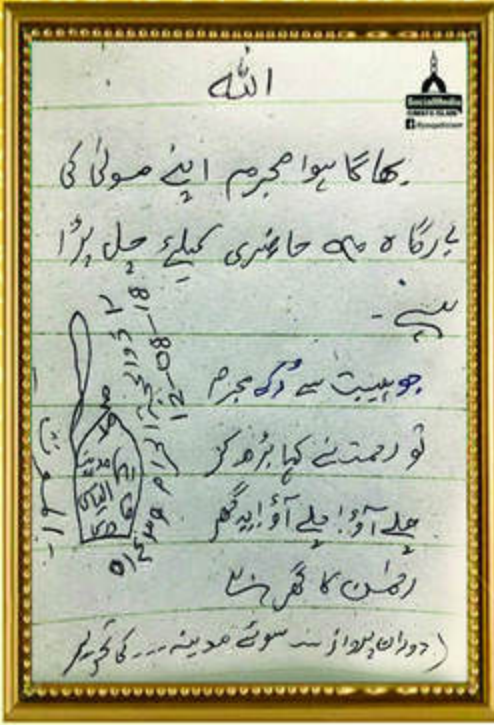 اللہ
بھاگا ہوا مجرم اپنے مولیٰ کی
بارگاہ میں حاضری کیلئے چل پڑا
ہے۔
جو ہیبت سے رُکے مجرم
تو رحمت نے کہا بڑھ کر
چلے آؤ! چلے آؤ! یہ گھر
رحمٰن کا گھر ہے
(دورانِ پرواز سوئے مدینہ --- کی تحریر
12-08-18
SocialMedia
DAWATE ISLAMI